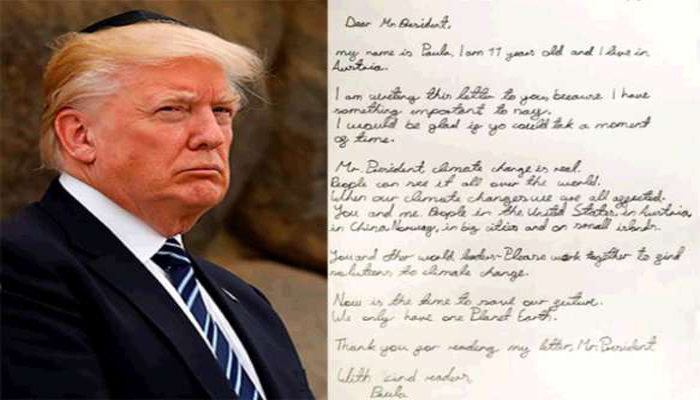 Dear Mr. President,
my name is Paula, I am 11 years old and I live in
Austria.
I am writing this letter to you, because I have
something important to say.
I would be glad if yo could tak a moment
of time.
Mr. President, climate change is real.
People can see it all over the world.
When our climate changes we are all affected.
You and me. People in the United States, in Austria,
in China, Norway, in big cities and on small islands.
You and other world leaders - Please work together to find
solutions to climate change.
Now is the time to save our future.
We only have one Planet Earth.
Thank you for reading my letter, Mr. President
With kind
Paula